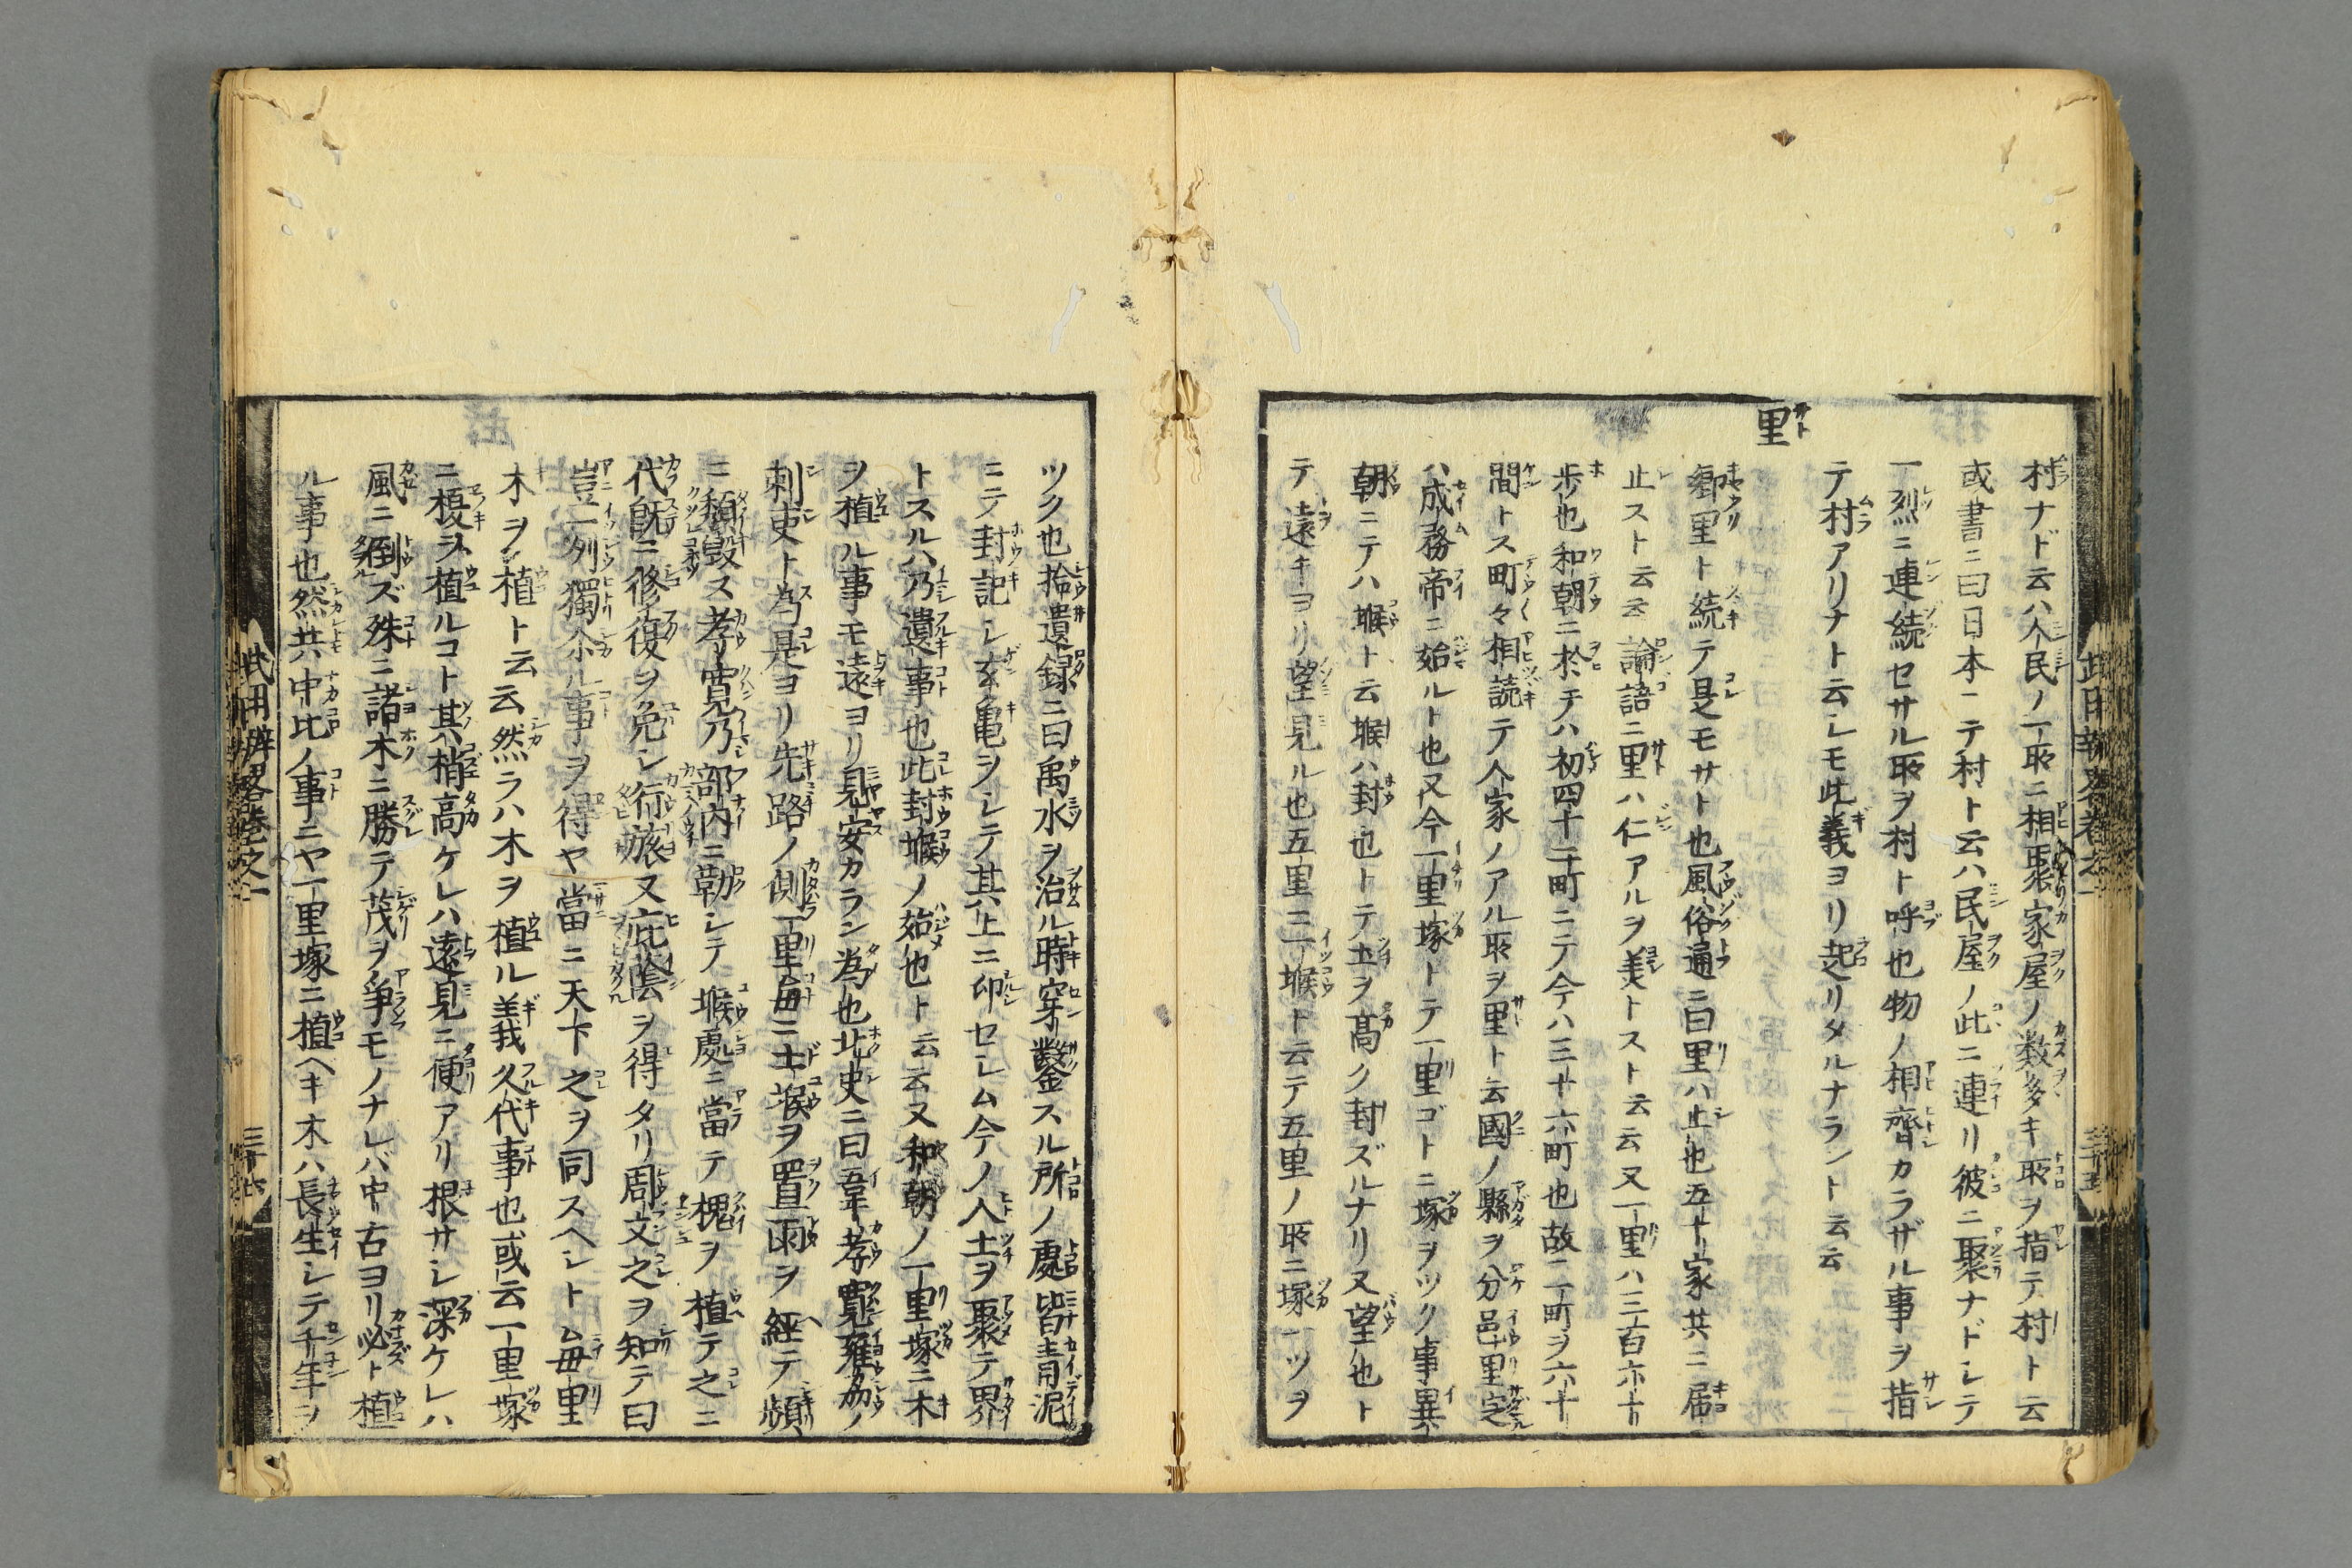 村ナド云ハ人民ノ一所ニ相聚家屋ノ数多キ所ヲ指テ村ト云
或書ニ曰日本ニテ村ト云ハ民屋ノ此ニ連リ彼ニ聚ナドシテ
一烈ニ連続セサル所ヲ村ト呼也物ノ相齊カラザル事ヲ指
テ村アリナト云シモ此義ヨリ起リタルナラント云云
里
郷里ト続テ是モサト也風俗通ニ曰里ハ止也五十家共ニ居
止スト云云論語ニ里ハ仁アルヲ美トスト云云又一里ハ三百六十
歩也和朝ニ於テハ初四十二町ニテ今ハ三十六町也故一町ヲ六十
間トス町々相読テ人家ノアル所ヲ里ト云國ノ縣ヲ分邑里定
ハ成務帝ニ始ルト也又今一里塚トテ一里ゴトニ塚ヲツク事異
朝ニテハ堠ト云堠ハ封也トテ土ヲ高ク封ズルナリ又望也ト
テ遠キヨリ望見ル也五里ニ一堠ト云テ五里ノ所ニ塚一ツヲ
武用辨畧巻之一
三十五
ツク也拾遺録ニ曰禹水ヲ治ル時穿鑿スル所ノ處皆青泥
ニテ封記シ玄亀ヲシテ其上ニ印セシム今ノ人土ヲ聚テ界
トスルハ乃遺事也此封堠ノ始也ト云云又和朝ノ一里塚ニ木
ヲ植ル事モ遠ヨリ見安カラン為也北史ニ曰韋孝寛雍州ノ
刺史ト為是ヨリ先路ノ側一里毎ニ土堠ヲ置雨ヲ経テ頻
ニ頽毀ス孝寛乃部内ニ勒シテ堠處ニ當テ槐ヲ植テ之ニ
代既ニ修復ヲ免シ行旅又庇蔭ヲ得タリ周文之ヲ知テ曰
豈一列獨尒ル事ヲ得ヤ當ニ天下之ヲ同スヘシト毎里
木ヲ植ト云云然ラハ木ヲ植ル義我久代事也或云一里塚
ニ榎ヲ植ルコト其梢高ケレハ遠見ニ便アリ根サシ深ケレハ
風ニ倒ズ殊ニ諸木ニ勝テ茂ヲ争モノナレバ中古ヨリ必ト植
ル事也然共中比ノ事ニヤ一里塚ニ植ヘキ木ハ長生シテ千年ヲ
武用辨畧巻之一
三十六